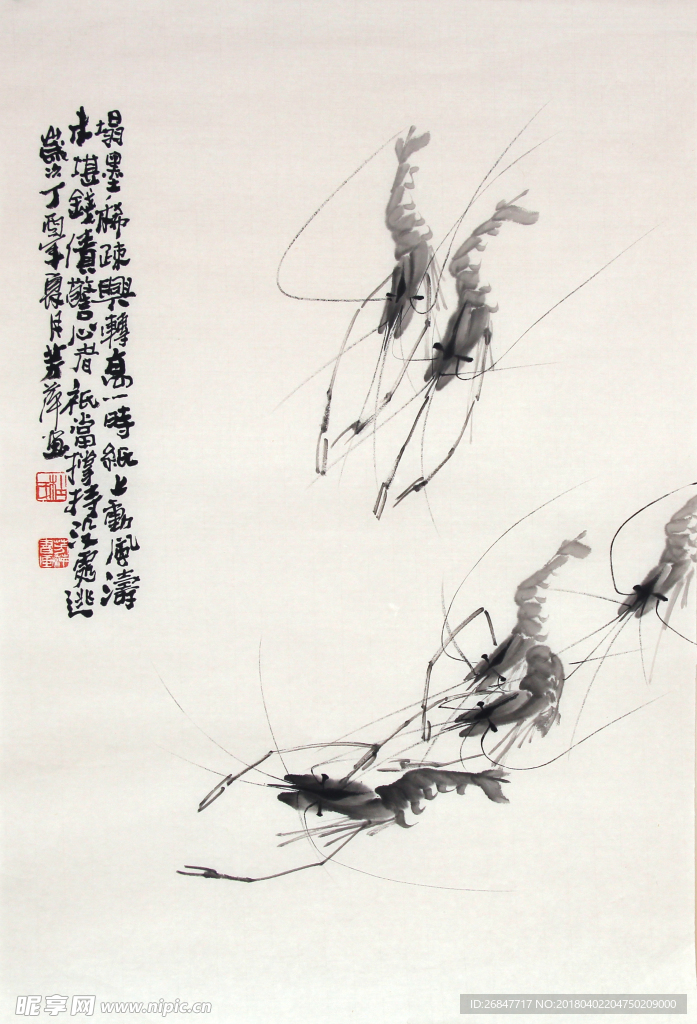 塌墨稀疎興轉高一時紙上動風濤
未堪錢債警心者祇當撐持沒處逃
歲次丁酉年夏月芳萍畫
昵享网 www.nipic.cn
ID:26847717 NO:20180402204750209000